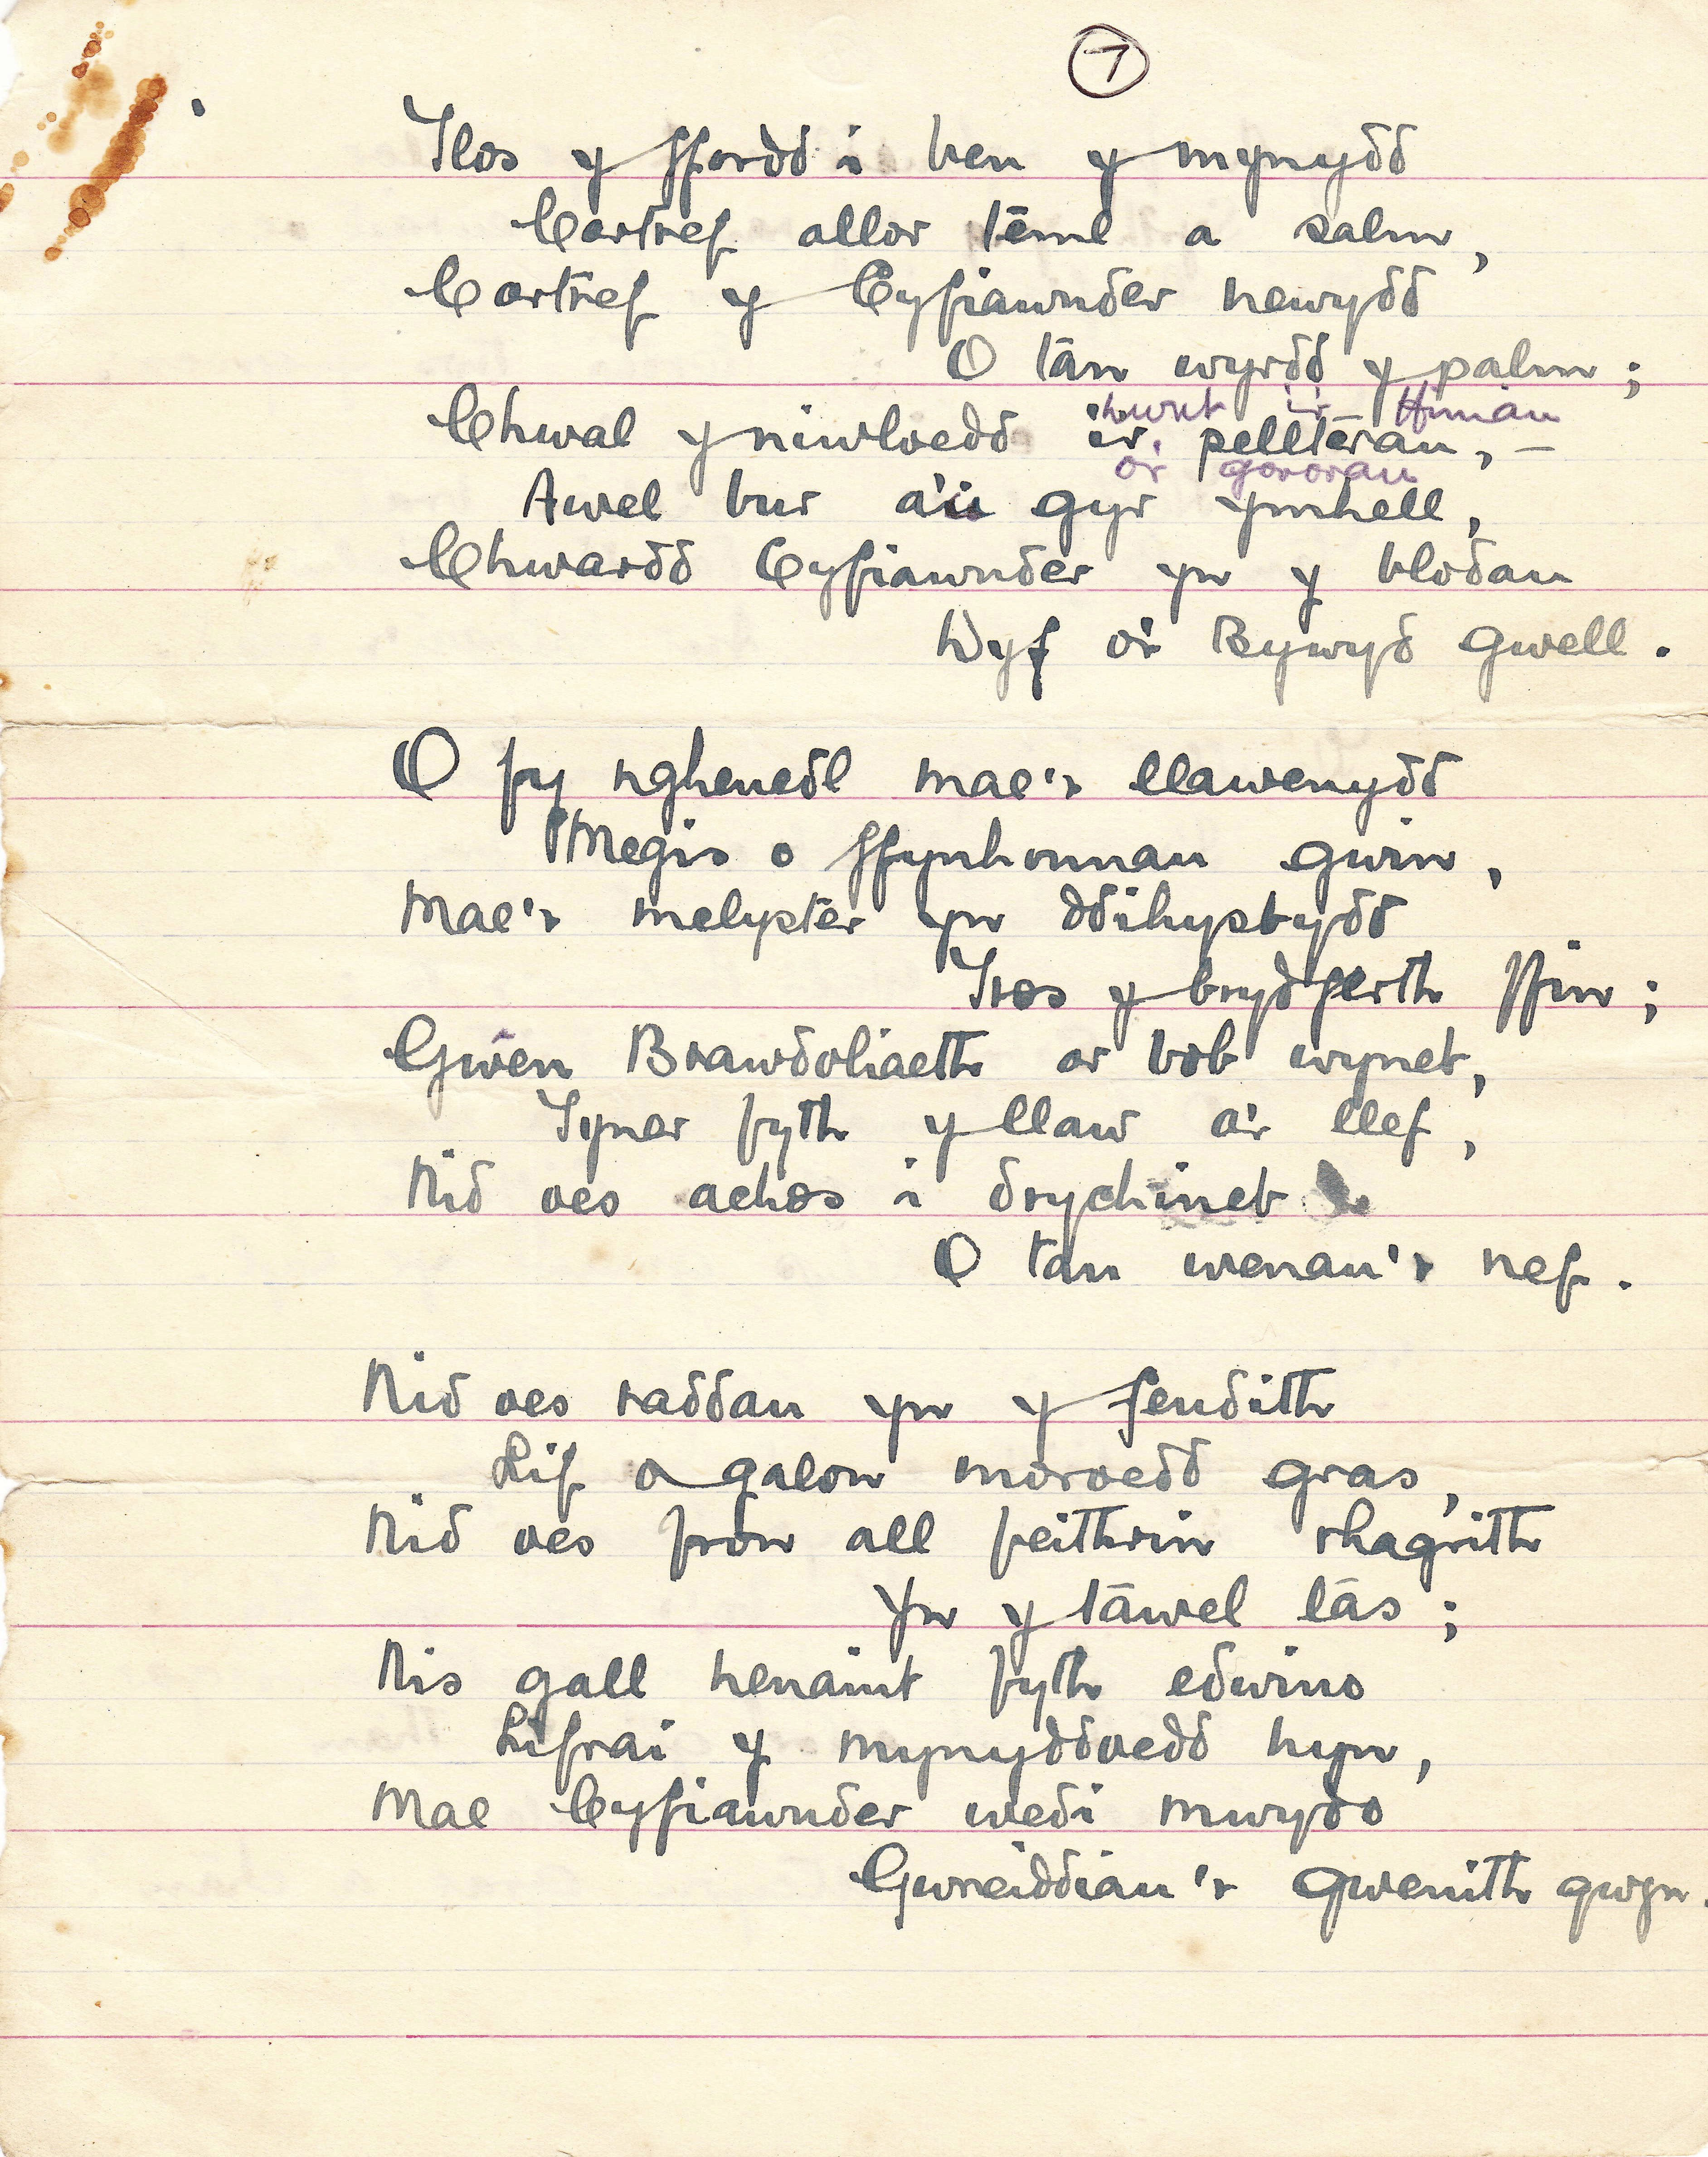 7
Tlos y ffordd i ben y mynydd
Cartref allor têml a salm,
Cartref y Cyfiawnder newydd
O tân wyrdd y palm;
Chwal y niwloedd i'r pellterau, –
hwnt i'r ffiniau
o'r gororau
Awel bur a'u gyr ymhell,
Chwardd Cyfiawnder yn y blodau
Dyf o'r Bywyd gwell.
O fy nghenedl mae'r llawenydd
Megis o ffynhonnau gwin,
Mae'r melyster yn ddihysbydd
Tros y brydferth ffin;
Gwên Brawdoliaeth ar bob wyneb,
Tyner fyth y llaw a'r llef,
Nid oes achos i drychineb
O tan wenau'r nef.
Nid oes raddau yn y fendith
Lif o galon moroedd gras,
Nid oes fron all feithrin rhagrith
Yn y tawel lâs;
Nis gall henaint fyth edwino
Lifrai y mynyddoedd hyn,
Mae Cyfiawnder wedi mwydo
Gwreiddiau'r gwenith gwyn.